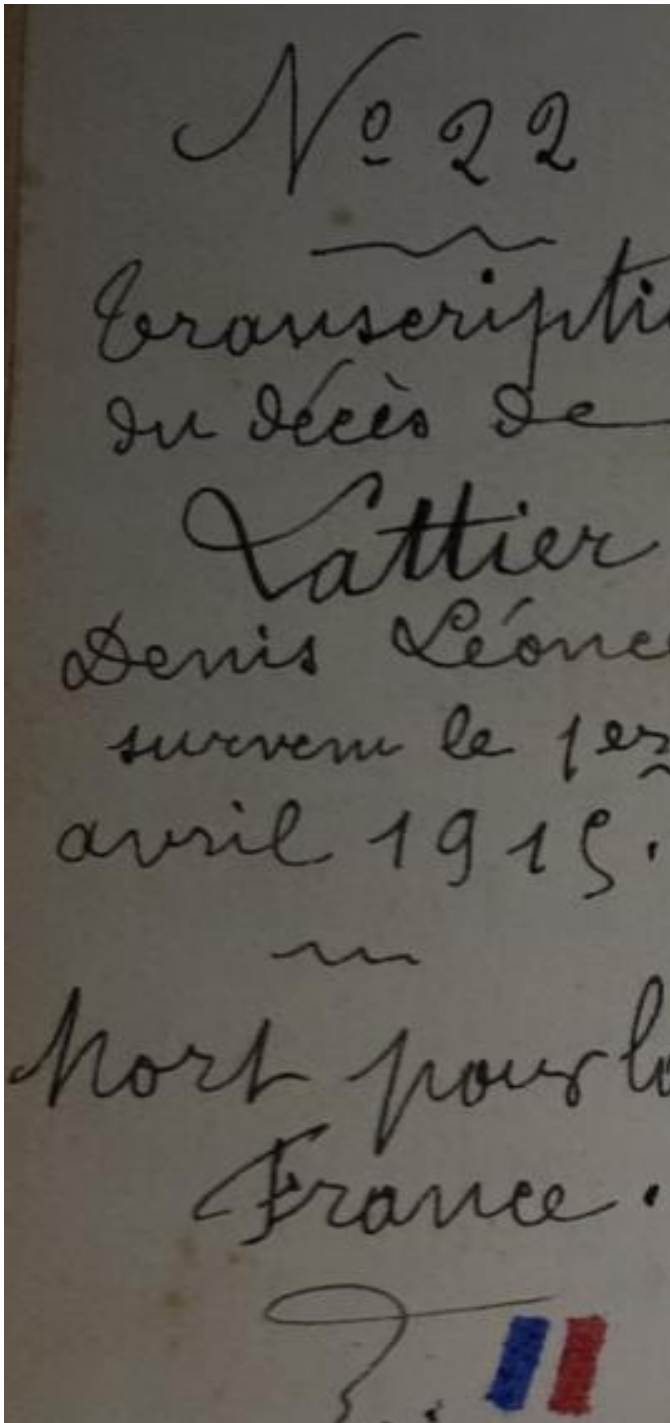 Nº 22
Transcriptio
du décès de
Lattier
Denis Léonce
survenu le 1er
avril 1915.
Mort pour la
France.